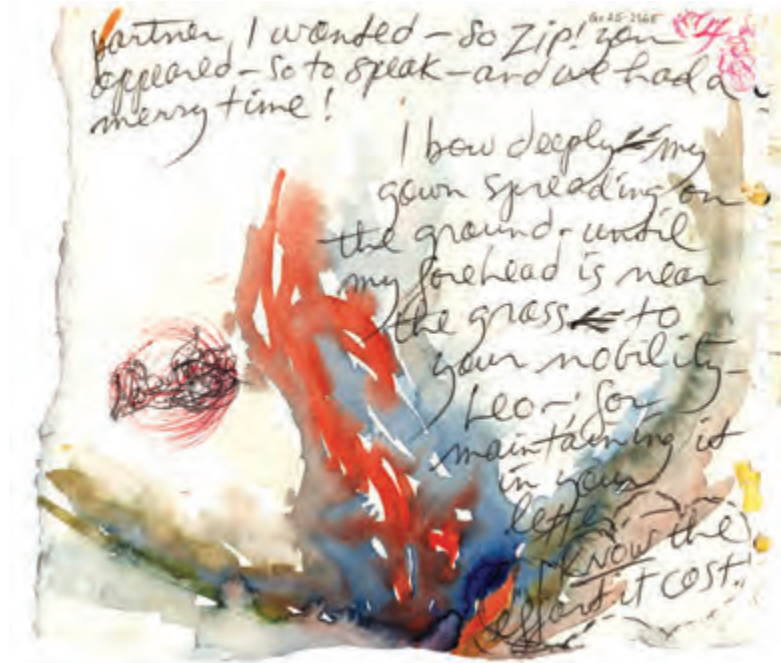 partner, I wanted – so Zip! you
appeared – so to speak – and we had a
merry time!
I bow deeply my
gown spreading on
the ground – until
my forehead is near
the grass to
your nobility –
Leo – ; for
maintaining it
in your
letter
I KNOW the
effort it cost.